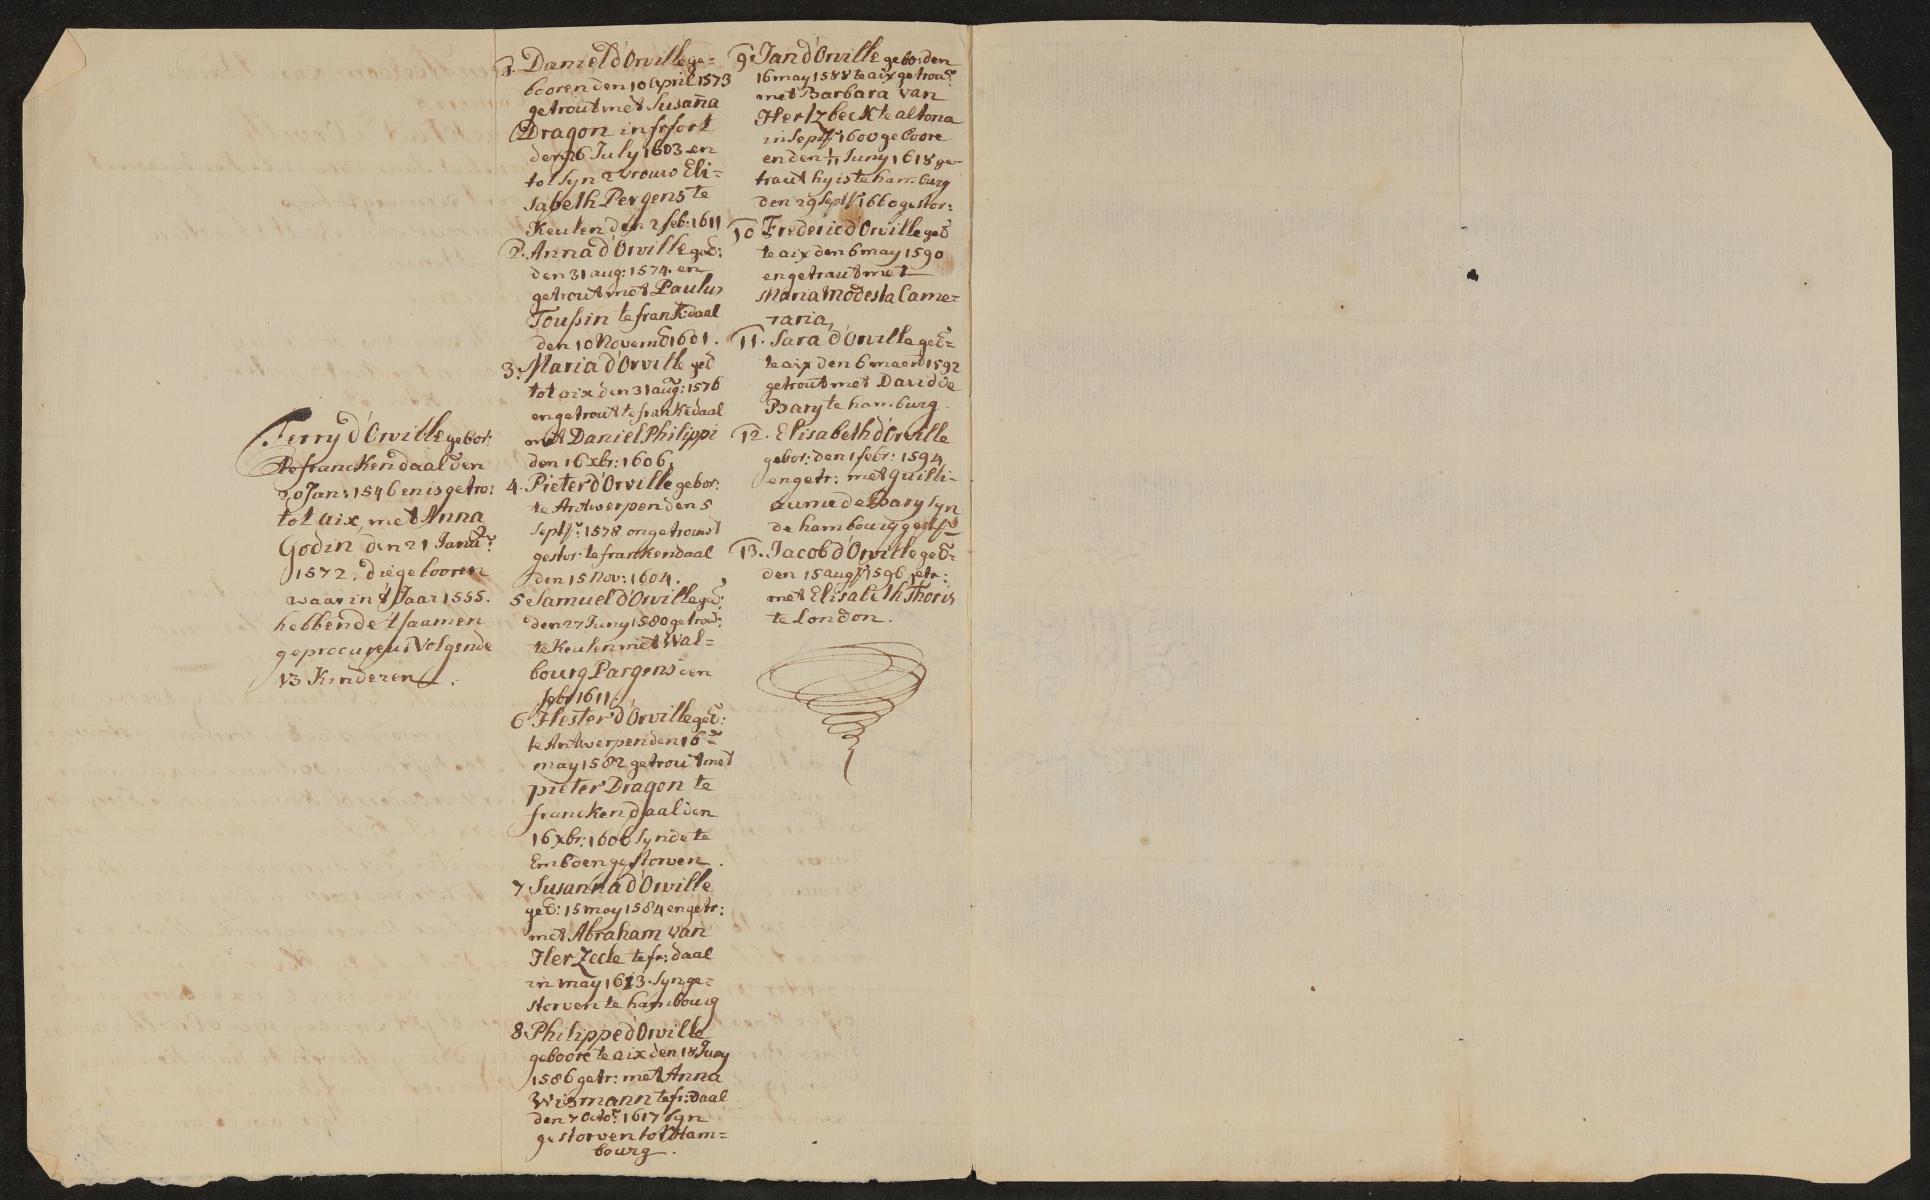 Ferry d'Orville gebor:
te franckendaal den
20 Jan: 1546 en is getro:
tot aix, met Anna
Godin, den 21 Janu:
1572, die gebooren
waar in 't Jaar 1555.
hebbende t'saamen
geprocureert Volgende
13 Kinderen.
1. Daniel d'Orville ge=
booren den 10 April 1573
getrout met Susana
Dragon in frfort
den 26 July 1603 en
tot syn 2 vrouw Eli=
sabeth Pergens te
Keulen den 2 feb: 1611
2. Anna d'Orville geb:
den 31 aug: 1574. en
getrout met Paulus
Toussin te frank:daal
den 10 Novemb 1601.
3. Maria d'Orville geb
tot aix den 31 aug: 1576
en getrout te frankedaal
met Daniel Philippi
den 16 xbr: 1606.
4. Pieter d'Orville gebor:
te Antwerpen den 5
Sept: 1578 ongetrouwt
gestor: te frankendaal
den 15 Nov: 1604.
5 Samuel d'Orville geb:
den 27 Juny 1580 getrou:
te Keulen met Wal=
bourg Pargens den
febr 1611.
6 Hester d'Orville geb:
te Antwerpen den 16
may 1582 getrout met
pieter Dragon te
franckendaal den
16 xbr: 1606 synde te
Embden gestorven.
7 Susanna d'Orville
geb: 15 may 1584 en getr:
met Abraham van
HerZeele te fr: daal
in may 1613. syn ge=
storven te hambourg
8. Philippe d'Orville
geboore te aix den 18 Juny
1586 getr: met Anna
Wismann te fr:daal
den 7 Octo: 1617 syn
gestorven tot Ham=
bourg.
9. Jan d'Orville gebo: den
16 may 1588 te aix getrou:
met Barbara van
Hertzbeck te altona
in Sept: 1600 geboore
en den 1/11 Juny 1618 ge=
traut hy is te hamburg
den 29 Sept: 1660 gestor:
10 Frederic d'Orville geb
te aix den 6 may 1590
en getraut met
Maria Modesta Came=
raria,
11. Sara d'Orville geb=
te aix den 6 maert 1592
getrout met David de
Bary te hamburg.
12. Elisabeth d'Orville
gebor: den 1 febr: 1594
en getr: met guilli-
aume de Bary syn
de hambourg
13. Jacob d'Orville geb=
den 15 aug: 1596 getr:
met Elisabeth Thoris
te London.